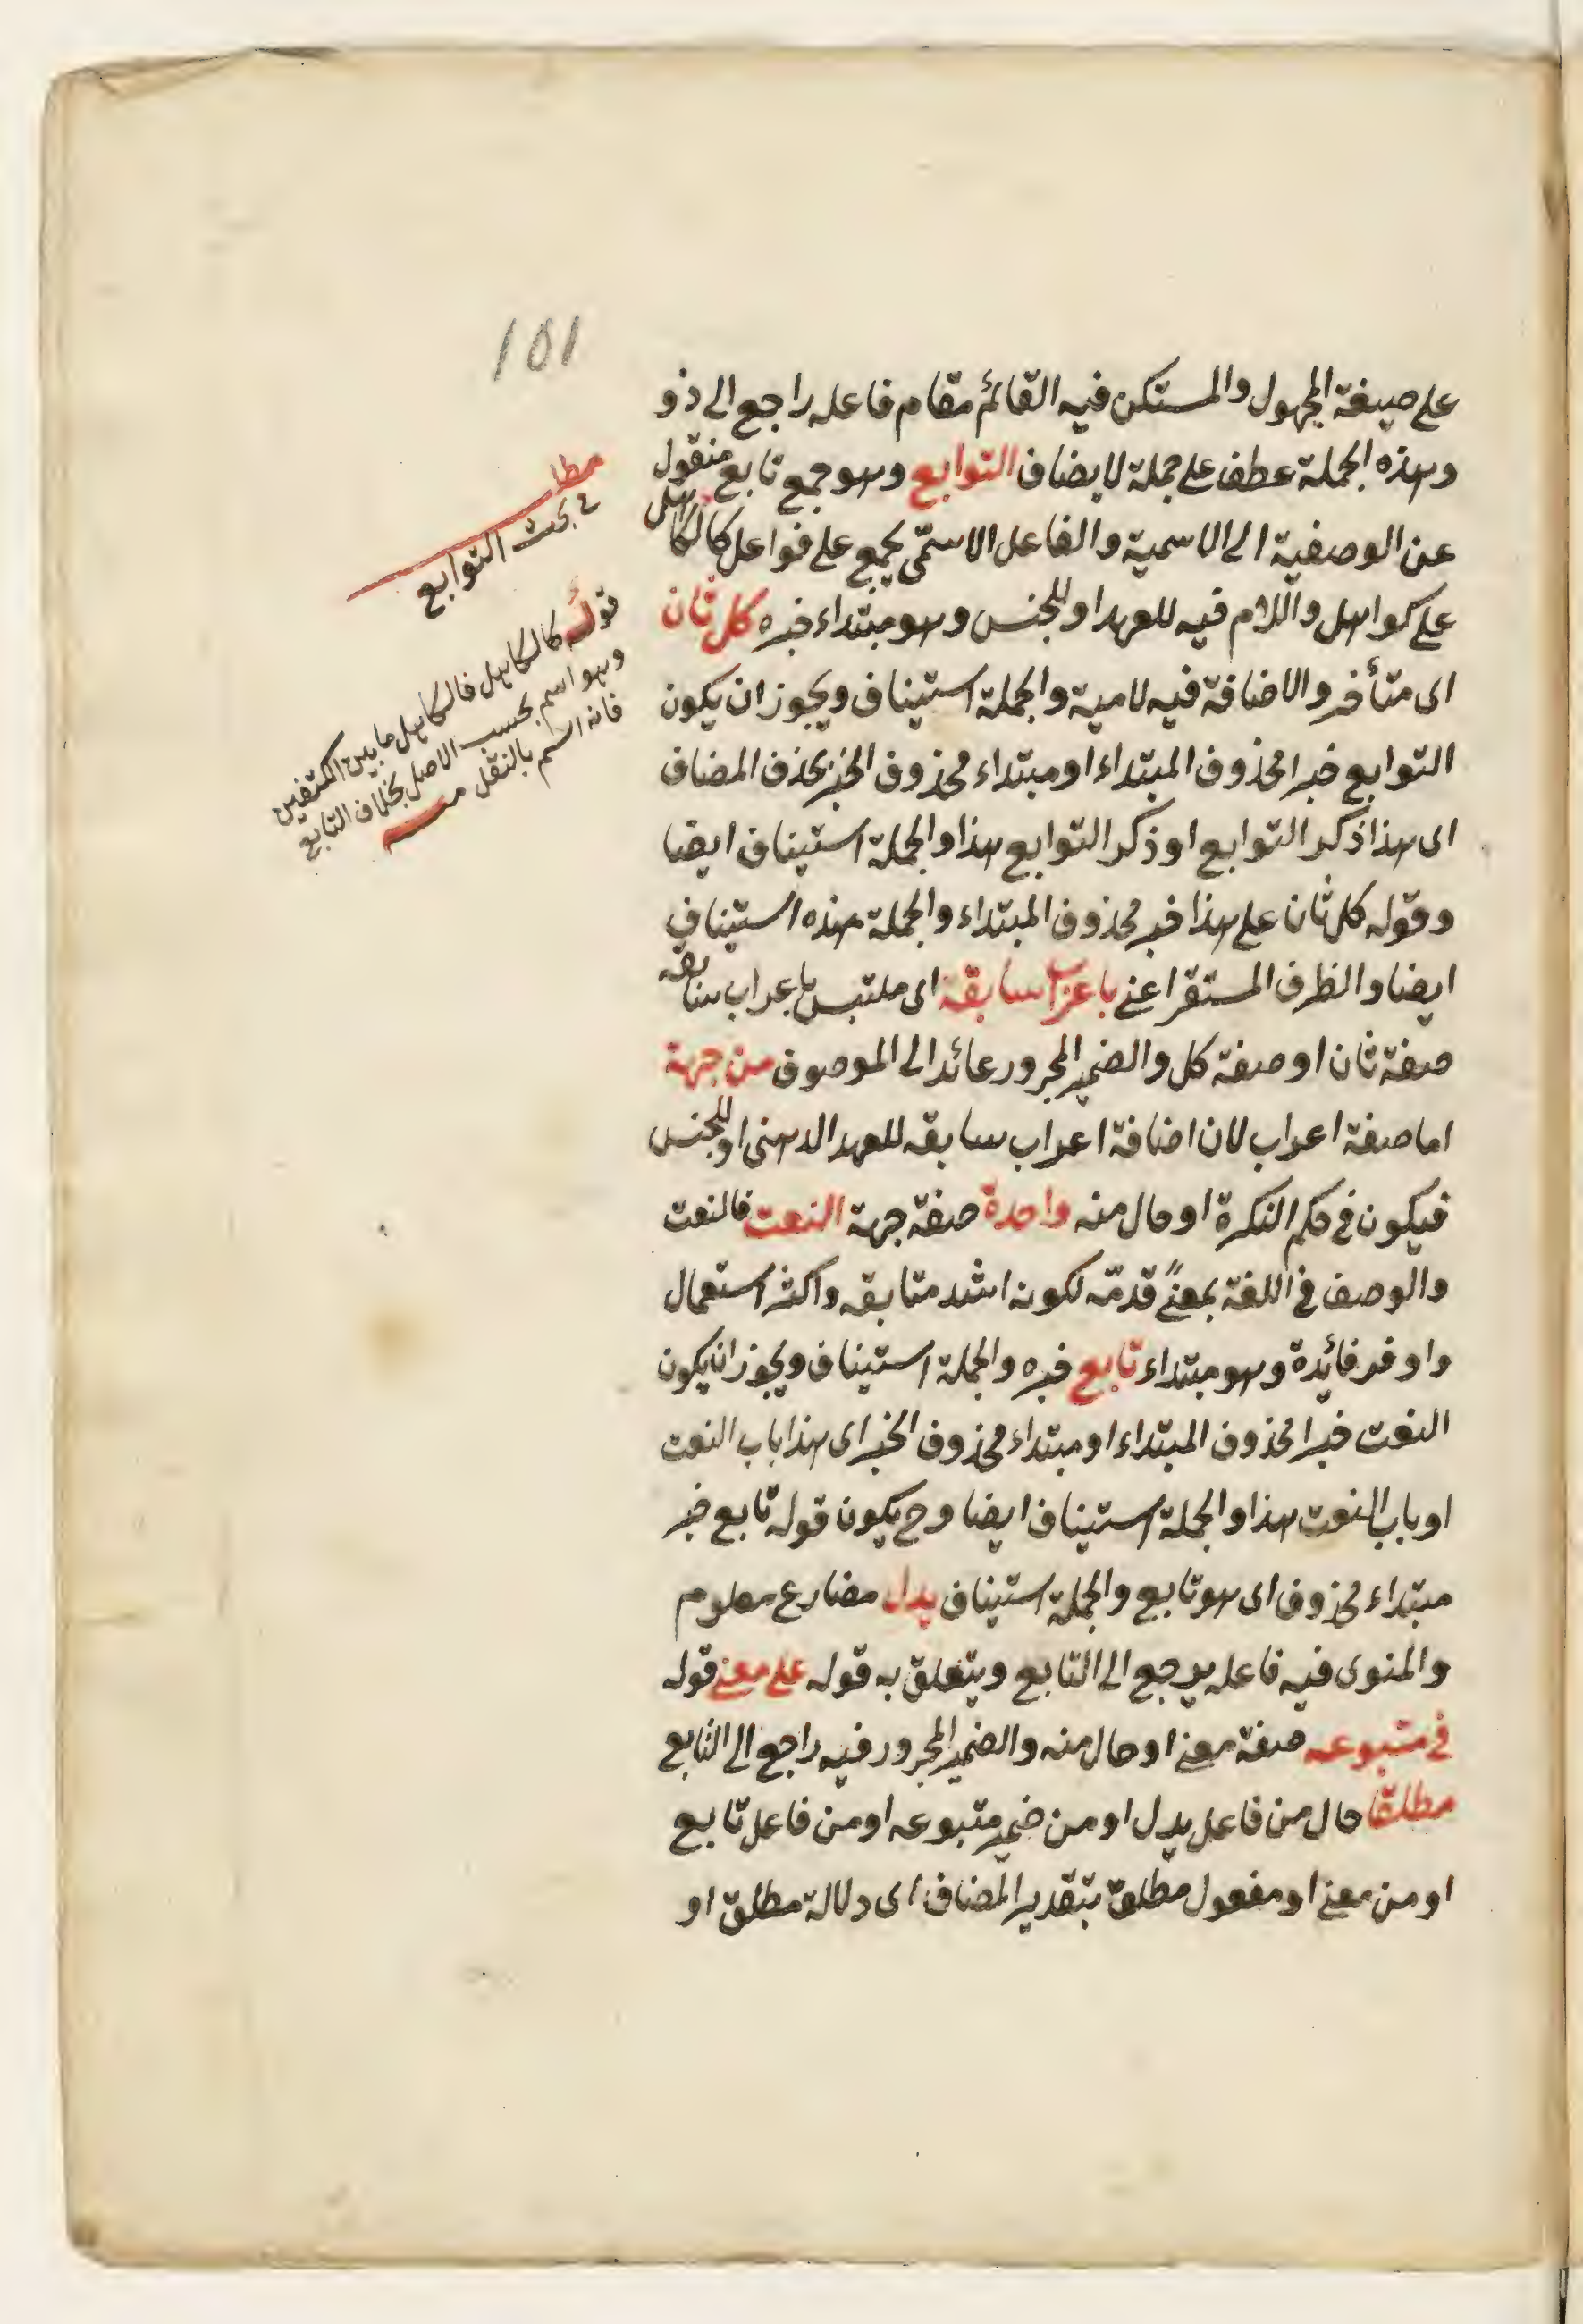 101
على صيغة المجهول والمستكن فيه القائم مقام فاعله راجع الى ذو
وهذه الجملة عطف على جملة لا يضاف التوابع وهو جمع تابع منقول
عن الوصفية الى الاسمية والفاعل الاسمّى يجمع على فواعل كالكاهل
على كواهل واللام فيه للعهد او للجنس وهو مبتداء خبره كل ثان
اى متأخر والاضافة فيه لامية والجملة استيناف ويجوز ان يكون
التوابع خبرا محذوف المبتداء او مبتداء محذوف الخبر بحذف المضاف
اى هذا ذكر التوابع او ذكر التوابع هذا والجملة استيناف ايضا
وقوله كل ثان على هذا خبر محذوف المبتداء والجملة هذه استيناف
ايضا والظرف المستقر اعنى باعراب سابقه اى ملتبس باعراب سابقه
صفة ثان او صفة كل والضمير المجرور عائد الى الموصوف من جهة
اما صفة اعراب لان اضافة اعراب سابقه للعهد الذهنى او للجنس
فيكون فى حكم النكرة او حال منه واحدة صفة جهة النعت فالنعت
والوصف فى اللغة بمعنًى قدمّه لكونه اشد متابقه واكثر استعمال
واوفر فائدة وهو مبتداء تابع خبره والجملة استيناف ويجوز ان يكون
النعت خبرا محذوف المبتداء او مبتداء محذوف الخبر اى هذا باب النعت
او باب النعت هذا والجملة استيناف ايضا وح يكون قوله تابع خبر
مبتداء محذوف اى هو تابع والجملة استيناف يدل مضارع معلوم
والمنوى فيه فاعله يرجع الى التابع ويتعلق به قوله على معنى قوله
فى متبوعه صفة معنى او حال منه والضمير المجرور فيه راجع الى التابع
مطلقا حال من فاعل يدل او من ضمير متبوعه او من فاعل تابع
او من معنى او مفعول مطلق بتقدير المضاف اى دلالة مطلق او
مطلب
فى بحث التوابع
قوله كالكاهل فالكاهل ما بين الكتفين
وهو اسم بحسب الاصل بخلاف التابع
فانه اسم بالنقل منه